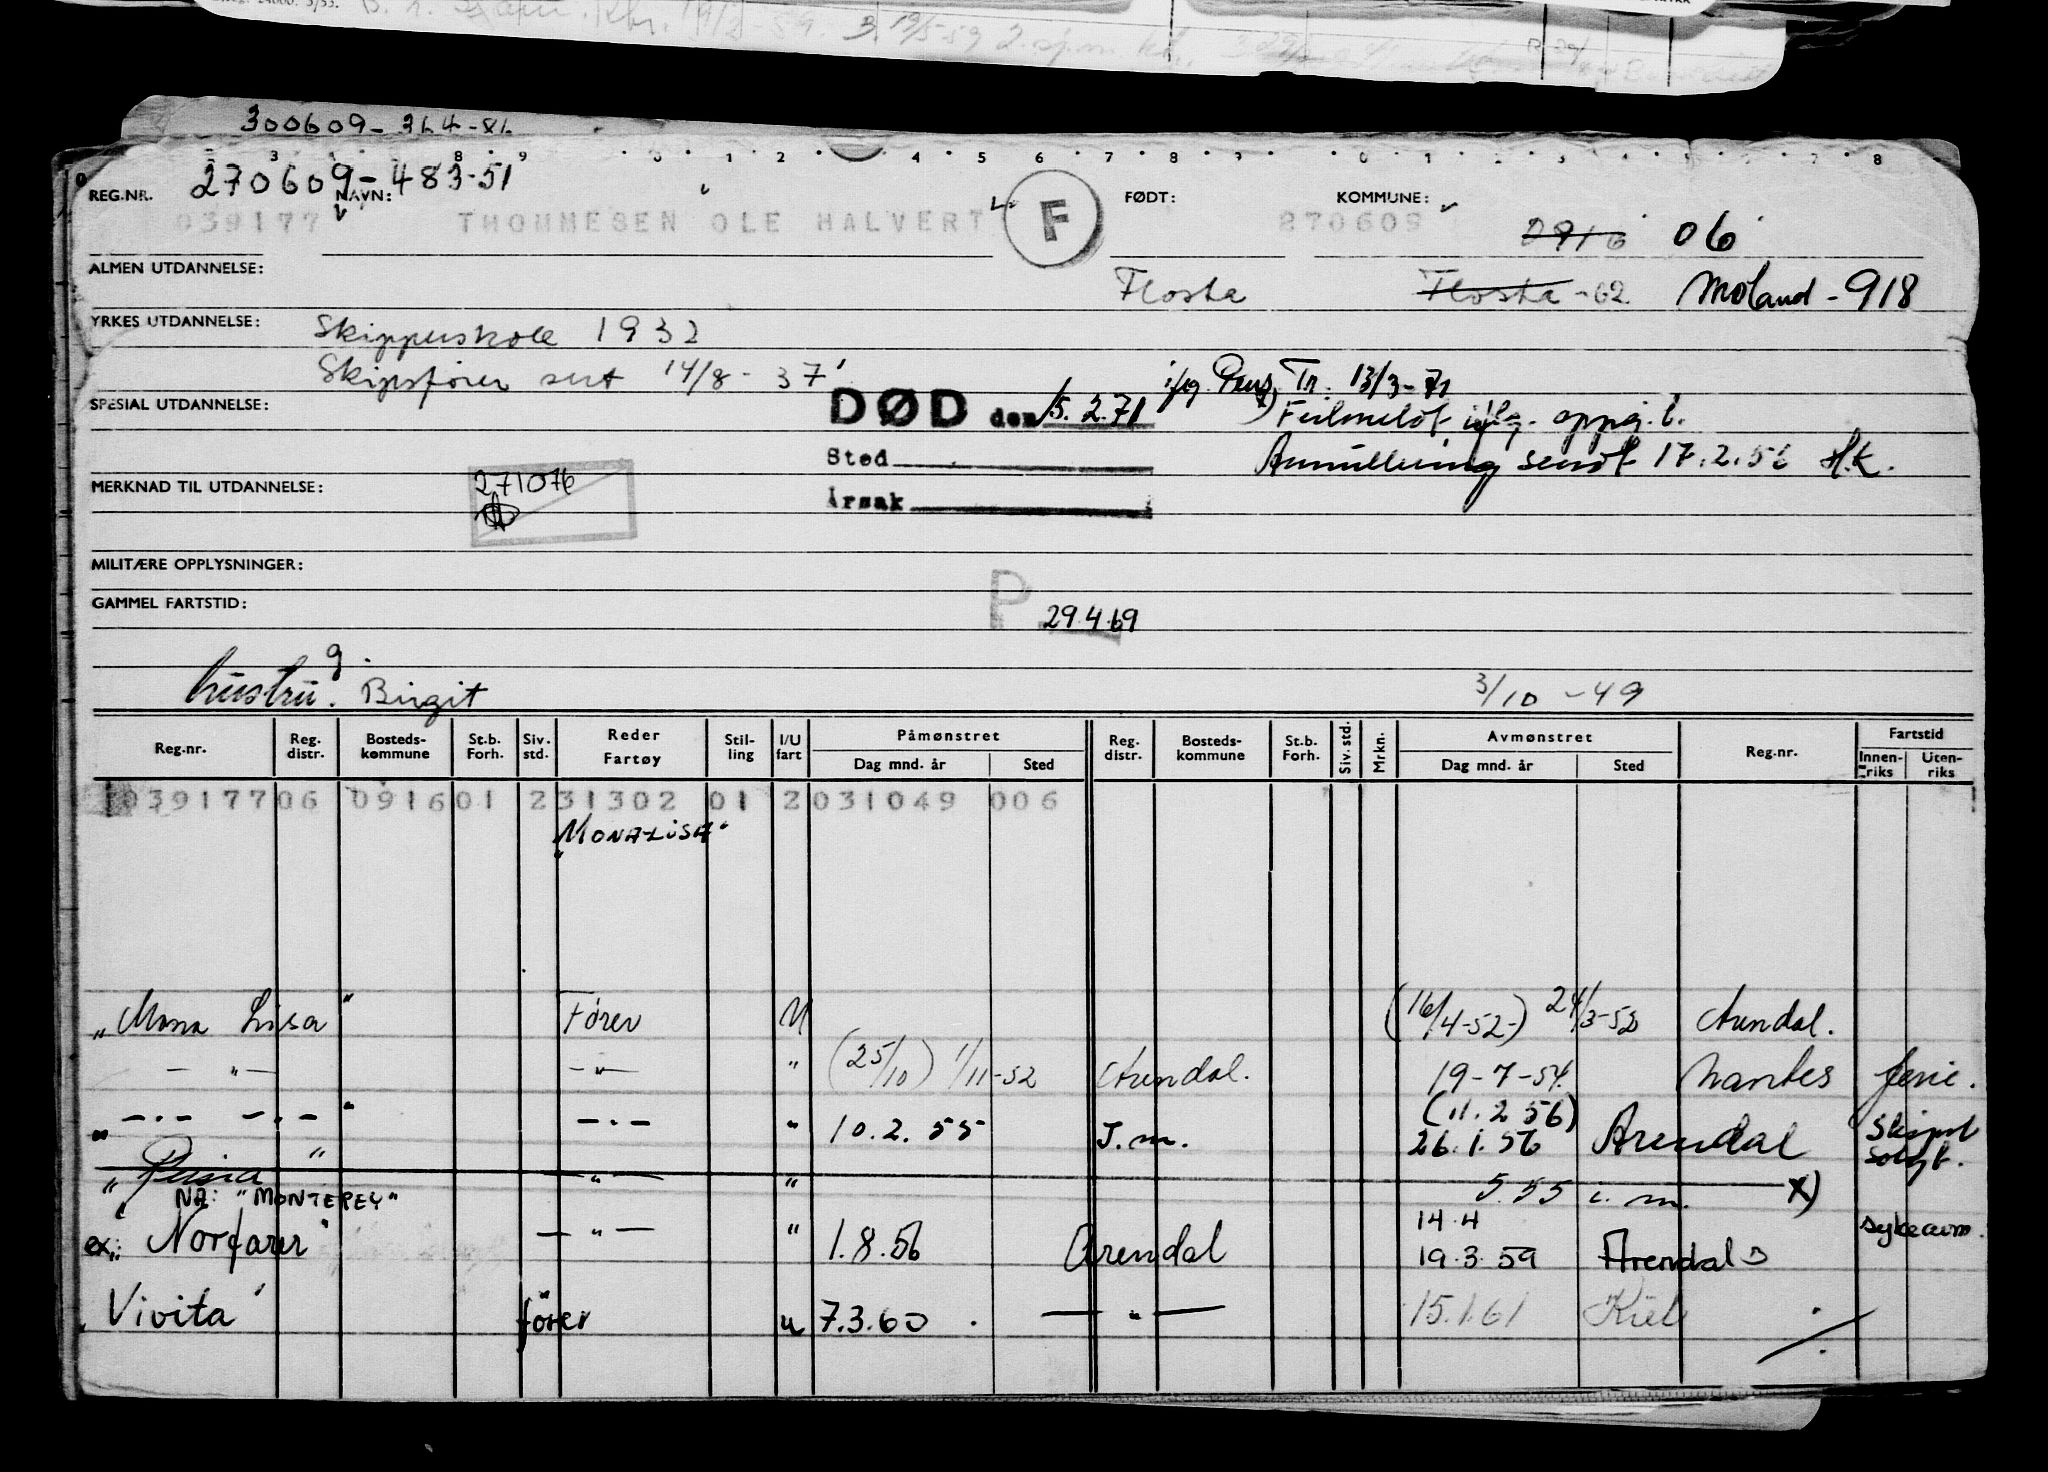 300609-
270609-483-51
REG.NR. NAVN: FØDT: KOMMUNE:
039177 THOMMESEN OLE HALVERT F 270609 0916 06
ALMEN UTDANNELSE: Flosta Flosta -62 Moland-918
YRKES UTDANNELSE: Skipperskole 1932
Skipsfører sert 14/8-37
SPESIAL UTDANNELSE: DØD den 15.2.71 iflg. Pens. Tr. 13/3-71
x) Feilmeldt iflg. oppg. f.
Sted Annullering sendt 17.2.56 H.K.
MERKNAD TIL UTDANNELSE: 271076
Årsak
MILITÆRE OPPLYSNINGER:
GAMMEL FARTSTID: P 29.4.69
g.
hustru. Birgit 3/10-49
Reg.nr. Reg. distr. Bosteds-kommune St.b. Forh. Siv. std. Reder Fartøy Stil-ling I/U fart Påmønstret Dag mnd. år Sted Reg. distr. Bosteds-kommune St.b. Forh. Siv. std. Mrkn. Avmønstret Dag mnd. år Sted Reg.nr. Fartstid Innen-riks Uten-riks
039177 06 0916 01 2 31302 01 2 031049 006
"MONALISA"
"Mona Lisa" Fører U (16/4-52-) 24/3-52 Arendal.
- " - - " - " (25/10) 1/11-52 Arendal. 19-7-54 Nantes ferie.
" -.- -.- " -.- " 10.2.55 I.m. (11.2 56) 26.1.56 Arendal Skipet solgt.
" " - " - " 5.55 i.m. x)
NÅ: "MONTEREY"
ex: "Norfarer" - " - " 1.8.56 Arendal 14.4 19.3.59 Arendal sykeavm.
"Vivita" fører u 7.3.60 - " - 15.1.61 Kiel